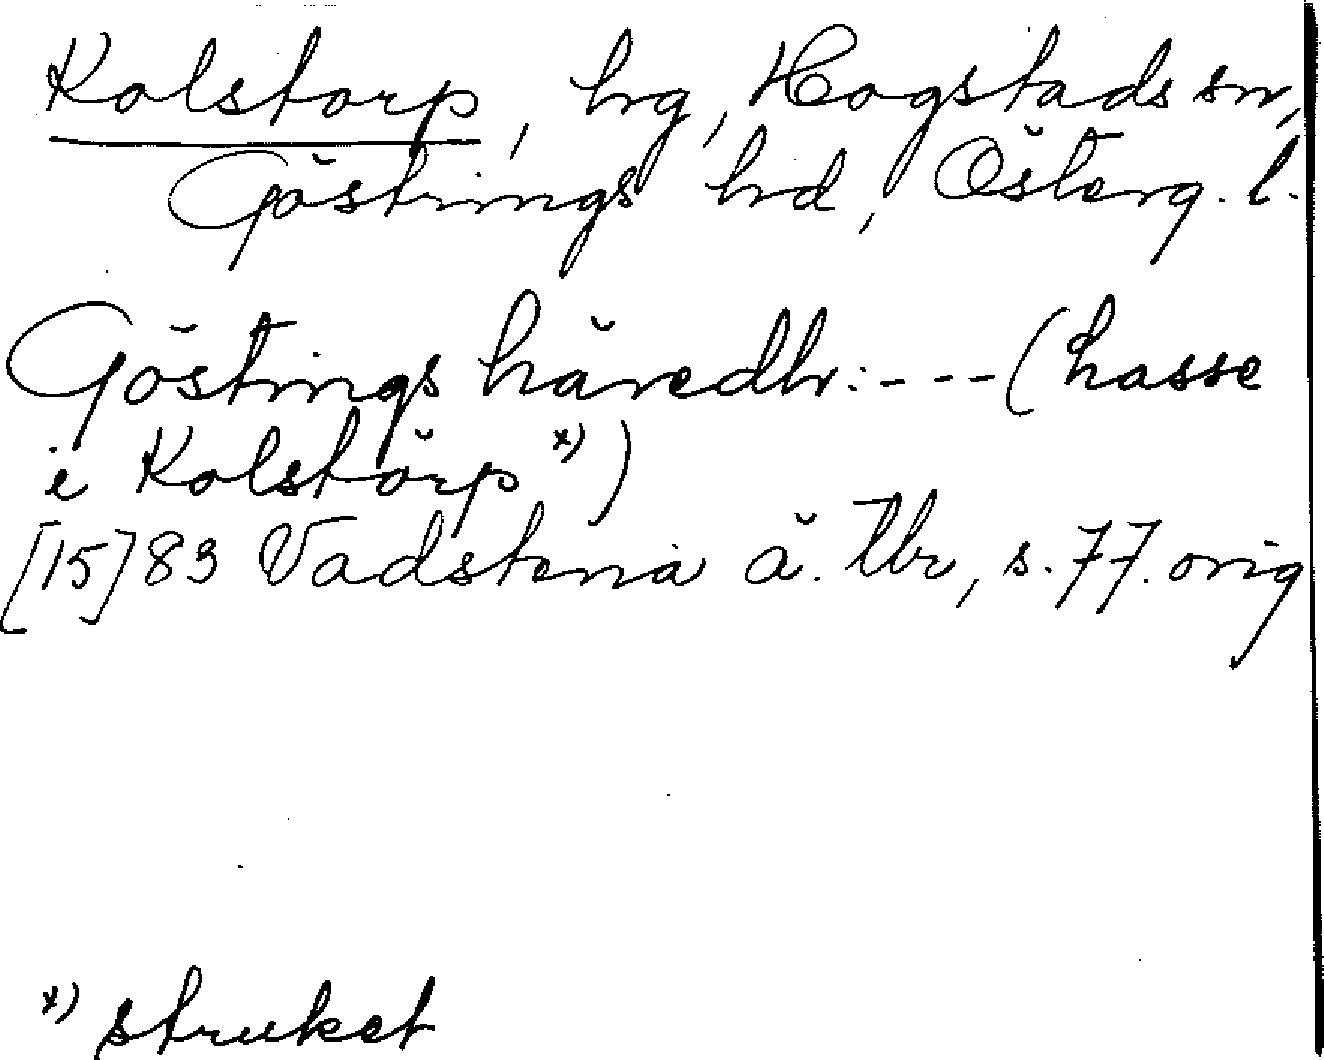 Kolstorp, hg, Hogstads sn,
Göstrings hd, Österg. l.
Göstings häredh: - - - (hasse
i Kolstörp x))
[15]83 Vadstena ä. Tbr, s. 77. orig
x) struket